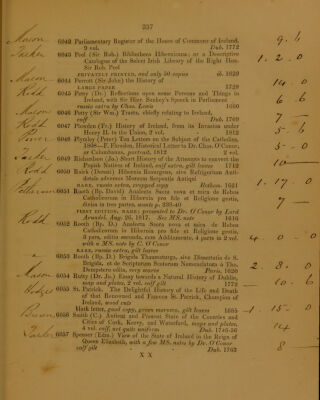 237
Mason 6042 Parliamentary Register of the House of Commons of Ireland, 9. 6
9 vol. Dub. 1772
6043 Peel (Sir Rob.) Bibliotheca Hibernicana: or a Descriptive 1. 2. 0
Catalogue of the Select Irish Library of the Right Hon.
Sir Rob. Peel
PRIVATELY PRINTED, and only 50 copies ib. 1820
Mason 6044 Perrott (Sir John) the History of 14. 0
LARGE PAPER 1728
Rodd 6045 Petty (Dr.) Reflections upon some Persons and Things in 6. 6
Ireland, with Hier. Sankey's Speech in Parliament
russia extra by Chas. Lewis 1660
Mason 6046 Petty (Sir Wm.) Tracts, chiefly relating to Ireland, 7
calf Dub. 1769
Rodd 6047 Plowden (F.) History of Ireland, from its Invasion under 5. 6
Henry II. to the Union, 2 vol. 1812
6048 Plymley (Peter) Ten Letters on the Subject of the Catholics, 5
1808—F. Plowden, Historical Letter to Dr. Chas. O'Conor,
or Columbanus, portrait, 1812 2 vol.
6049 Richardson (Jo.) Short History of the Attempts to convert the 10
Popish Natives of Ireland, calf extra, gilt leaves 1712
Rodd 6050 Riaird (Dermit) Hibernia Resurgens, sive Refrigerium Antidotale
adversus Morsum Serpentis Antiqui 1. 17. 0
RARE, russia extra, cropped copy Rothom. 1621
6051 Rooth (Bp. David) Analecta Sacra nova et mira de Rebus 7
Catholicorum in Hibernia pro fide et Religione gestis,
divisa in tres partes, wants pp. 339-40
FIRST EDITION, RARE; presented to Dr. O'Conor by Lord
Arundel, Aug. 26, 1817. See MS. note 1616
Rodd 6052 Rooth (Bp. D.) Analecta Sacra nova et mira de Rebus
Catholicorum in Hibernia pro fide et Religione gestis,
3 pars, editio secunda, cum Additamento, 4 parts in 2 vol.
with a MS. note by C. O'Conor
RARE, russia extra, gilt leaves
6053 Rooth (Bp. D.) Brigida Thaumaturga, sive Dissertatio de S. 2. 8. 0
Brigida, et de Scriptorum Scotorum Nomenclatura à Tho.
Dempstero edita, very scarce Paris. 1620
Mason 6054 Rutty (Dr. Jo.) Essay towards a Natural History of Dublin, 10. 6
map and plates, 2 vol. calf gilt 1772
6055 St. Patrick. The Delightful History of the Life and Death
of that Renowned and Famous St. Patrick, Champion of
Ireland, wood cuts
black letter, good copy, green morocco, gilt leaves 1685 1. 15. 0
6056 Smith (C.) Antient and Present State of the Counties and
Cities of Cork, Kerry, and Waterford, maps and plates, 14
4 vol. calf, not quite uniform Dub. 1746-56
6057 Spenser (Edm.) View of the State of Ireland in the Reign of
Queen Elizabeth, with a few MS. notes by Dr. O'Conor
calf gilt Dub. 1763 8
X X